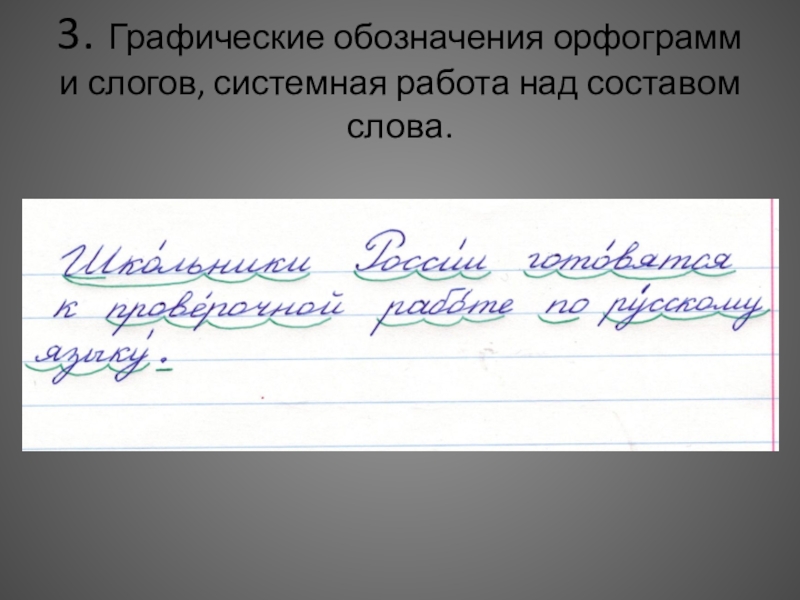 3. Графические обозначения орфограмм
и слогов, системная работа над составом
слова.
Шко́льники Росси́и гото́вятся
к прове́рочной рабо́те по ру́сскому
языку́.